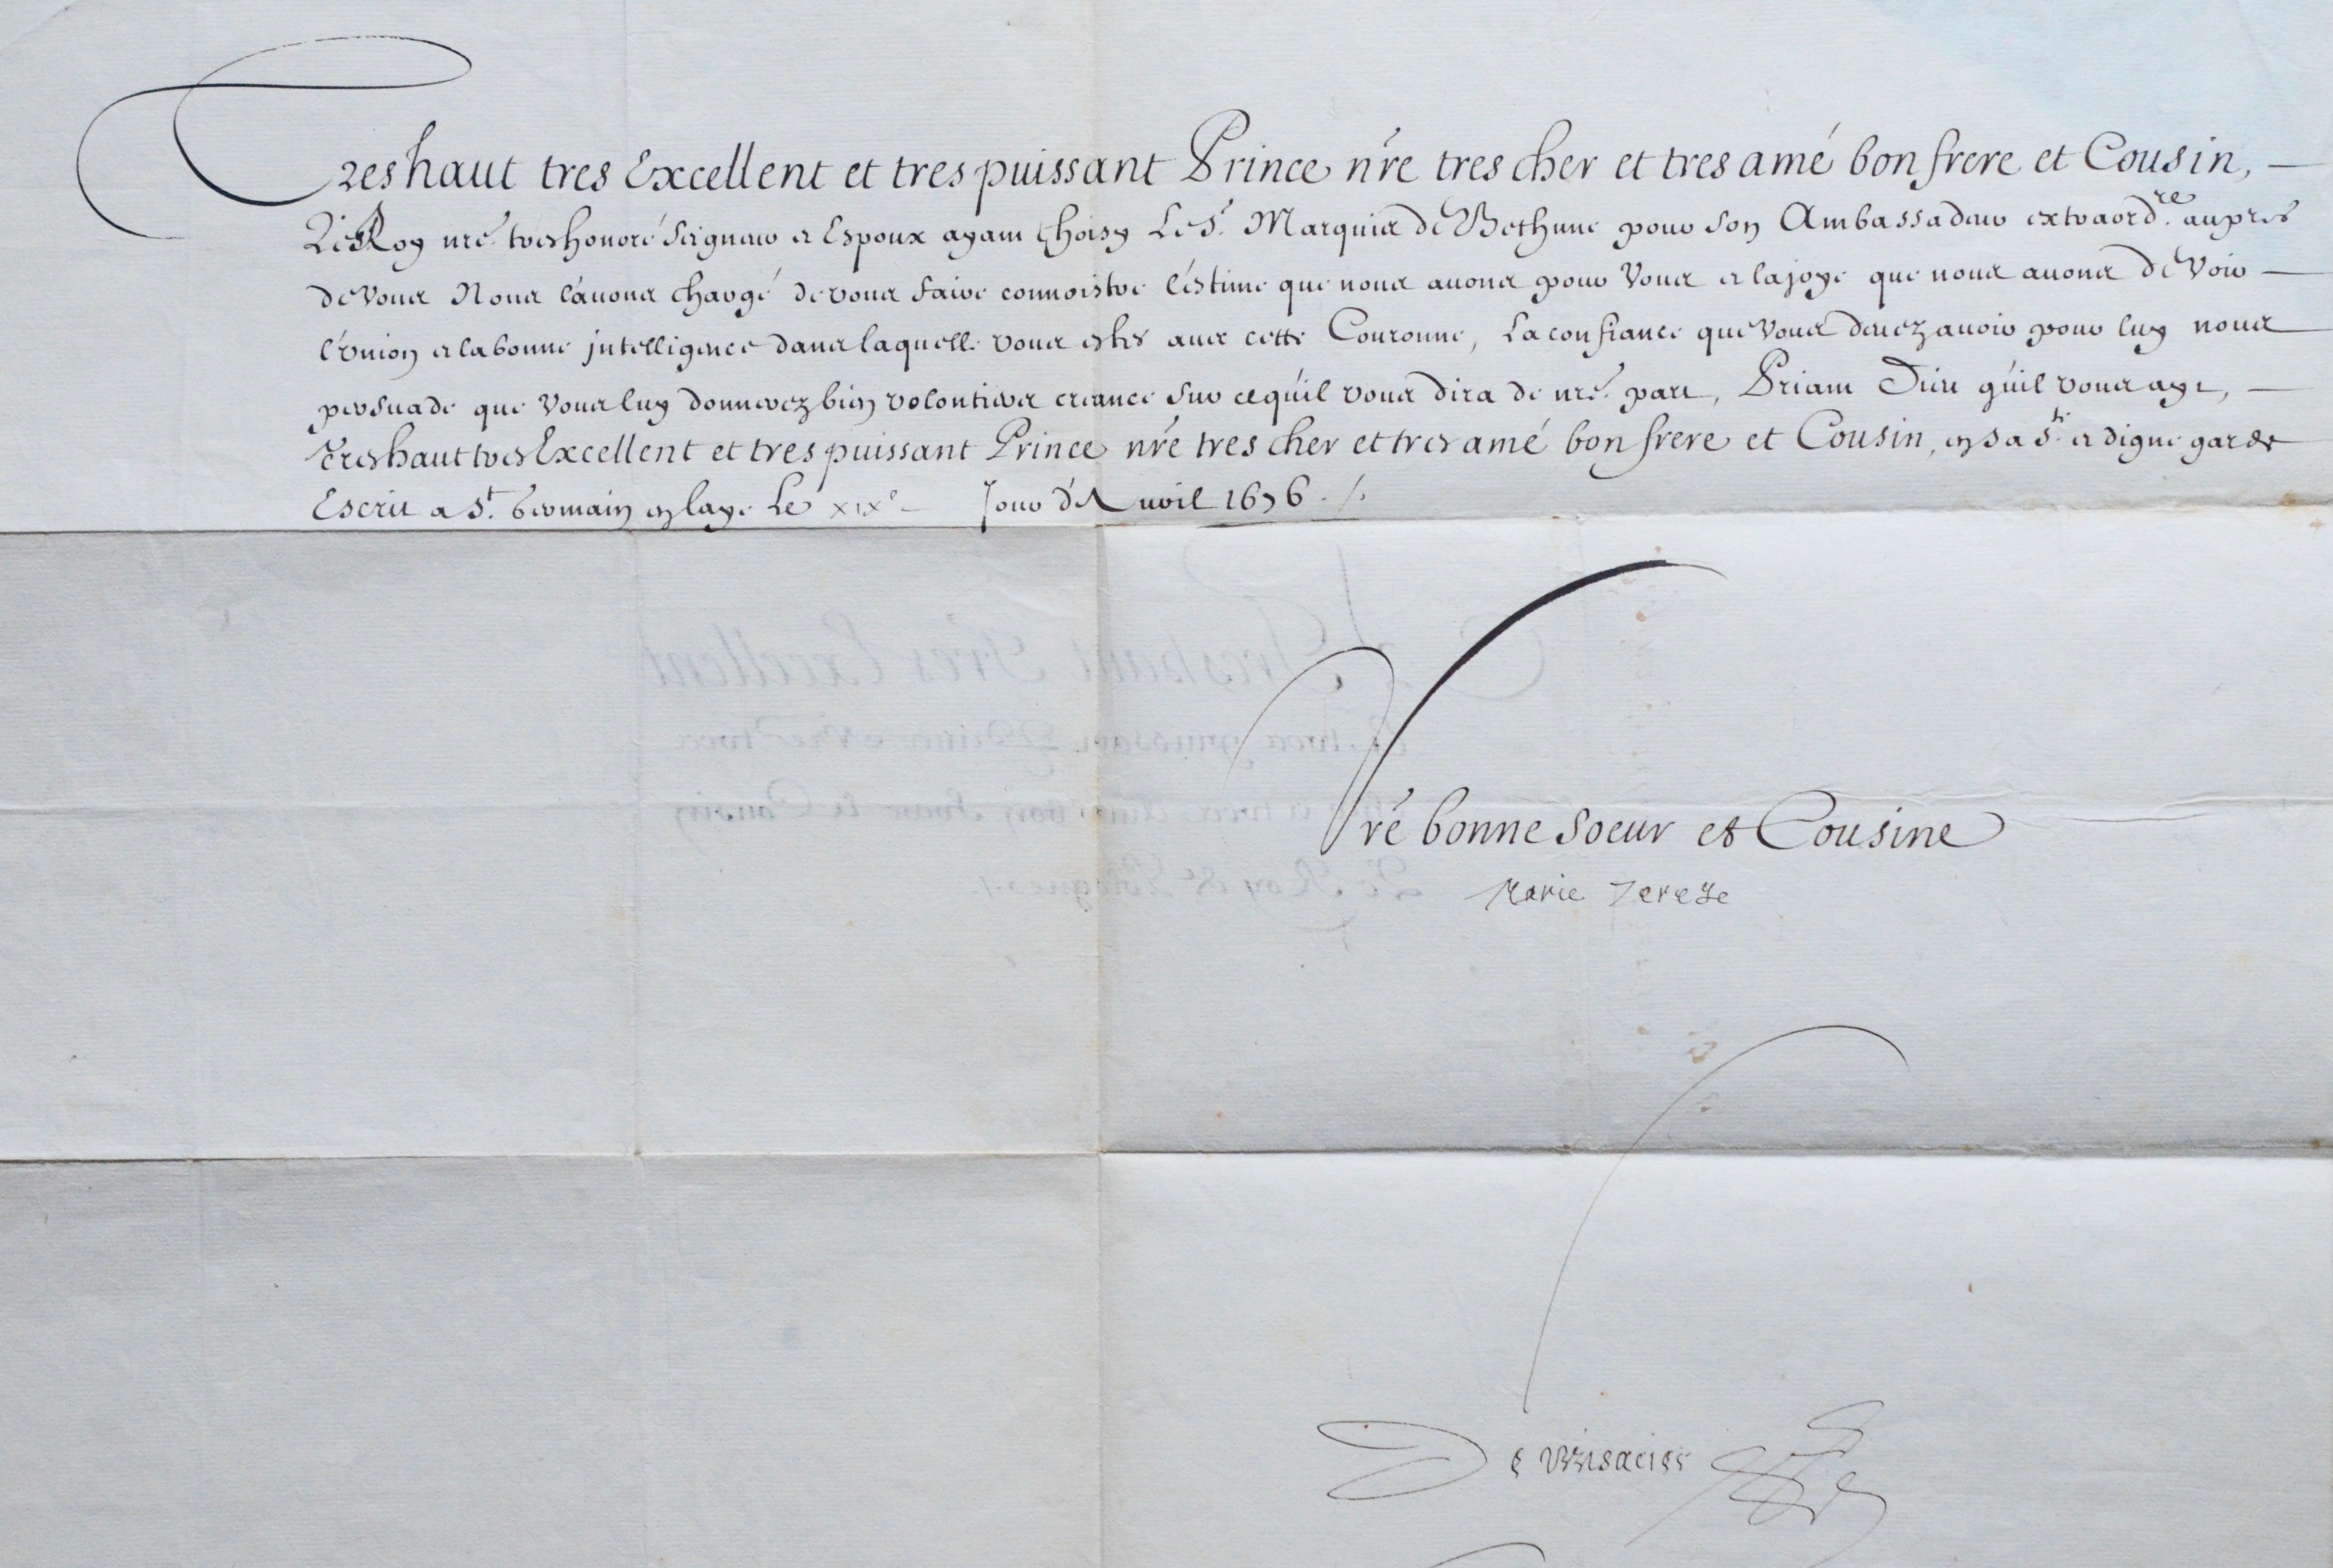 Tres haut tres Excellent et tres puissant Prince n're tres cher et tres amé bon frere et Cousin,
Le Roy nre. tres honoré Seigneur et Espoux ayant choisy Le Sr. Marquis de Bethune pour son Ambassadeur extraordre. aupres
de vous Nous l'avons chargé de vous faire connoistre l'estime que nous auons pour vous et la joye que nous auons de voir
l'vnion et la bonne jntelligence dans laquelle vous estes auec cette Couronne, La confiance que vous deuez auoir pour luy nous
persuade que vous luy donnerez bien volontiers creance sur ce qu'il vous dira de nre. part, Priant Dieu qu'il vous aye,
tres haut tres Excellent et tres puissant Prince n're tres cher et tres amé bon frere et Cousin, en sa Ste. et digne garde
Escrit a St. Germain en laye Le xixe Jour d'Auril 1676 ./.
Vre bonne soeur et Cousine
Marie Terese
Tres haut Tres Excellent
Et tres puissant Prince Nre tres
cher et tres amé bon frere et Cousin
Le Roy de Pologne